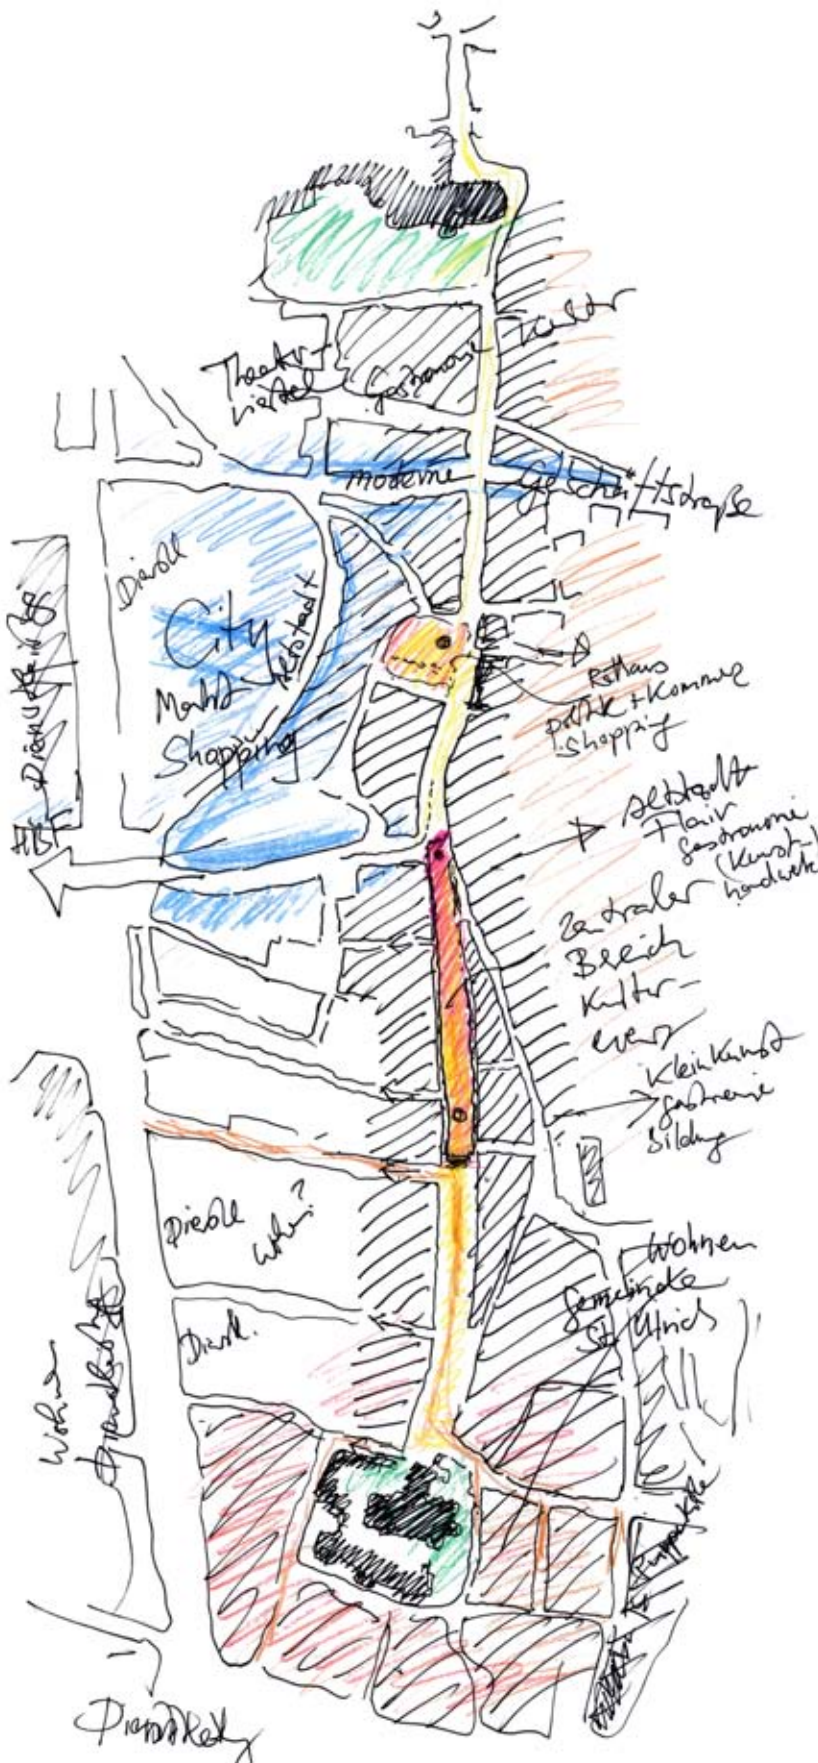 Theater-
viertel
Gastronomie
Kultur
moderne Geschäftstraße
Dienstl
City
Altstadt
Markt
Shopping
Dienstleistung
HBF
Rathaus
Politik + Kommerz
Shopping
Altstadt
Flair
Gastronomie
(Kunst-)
handwerk
Zentraler
Bereich
Kultur-
Kleinkunst
Gastronomie
Bildung
Dienstl
Wohn?
Dienstl.
Wohnen
Gemeinde
St. Ulrich
Wohnen